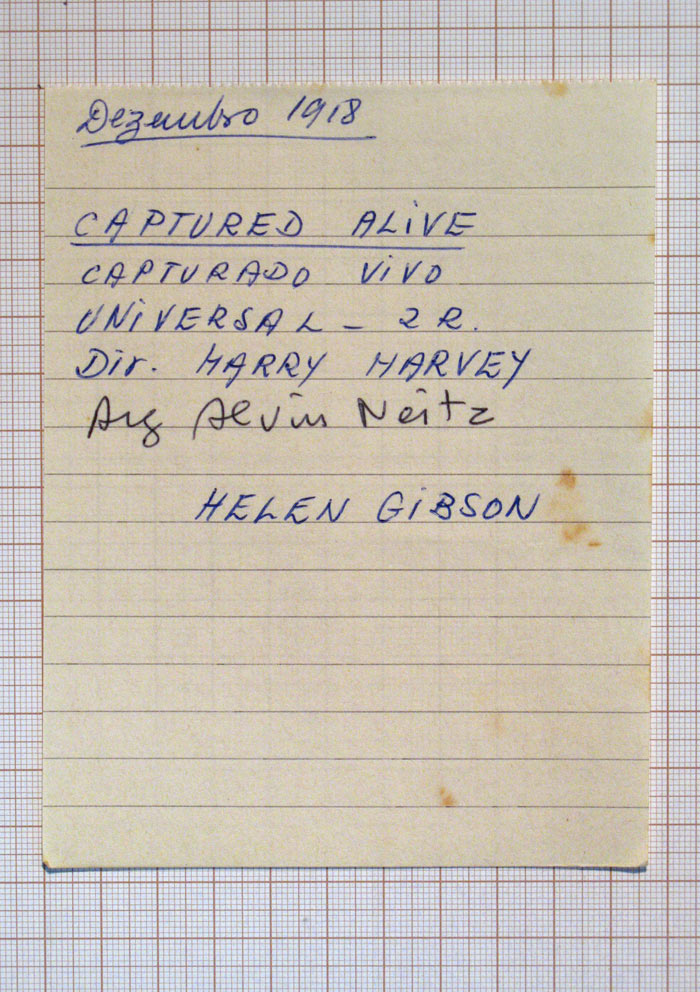 Dezembro 1918
CAPTURED ALIVE
CAPTURADO VIVO
UNIVERSAL - 2 R.
Dir. HARRY HARVEY
Arg Alvin Neitz
HELEN GIBSON